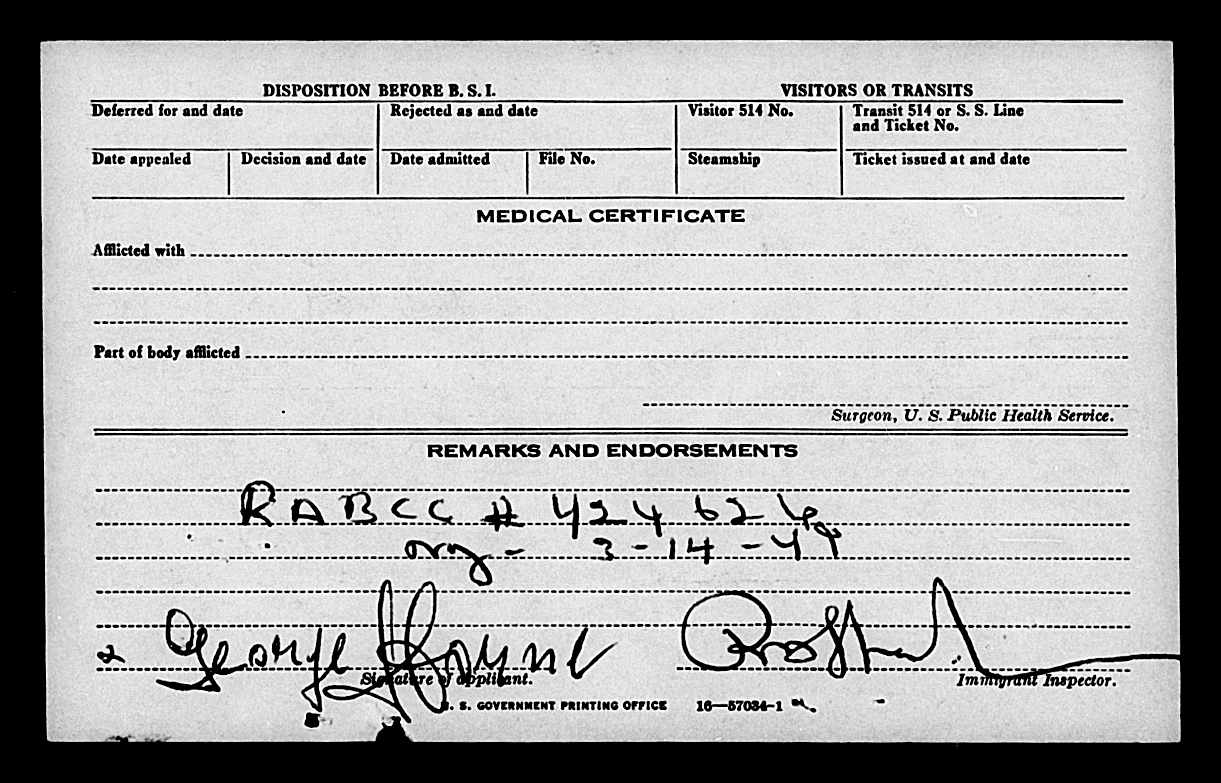 DISPOSITION BEFORE B. S. I. VISITORS OR TRANSITS
Deferred for and date Rejected as and date Visitor 514 No. Transit 514 or S. S. Line
and Ticket No.
Date appealed Decision and date Date admitted File No. Steamship Ticket issued at and date
MEDICAL CERTIFICATE
Afflicted with
Part of body afflicted
Surgeon, U. S. Public Health Service.
REMARKS AND ENDORSEMENTS
RABCC # 424 624
3-14-49
George
Signature of applicant. Immigrant Inspector.
U. S. GOVERNMENT PRINTING OFFICE 16—57034-1